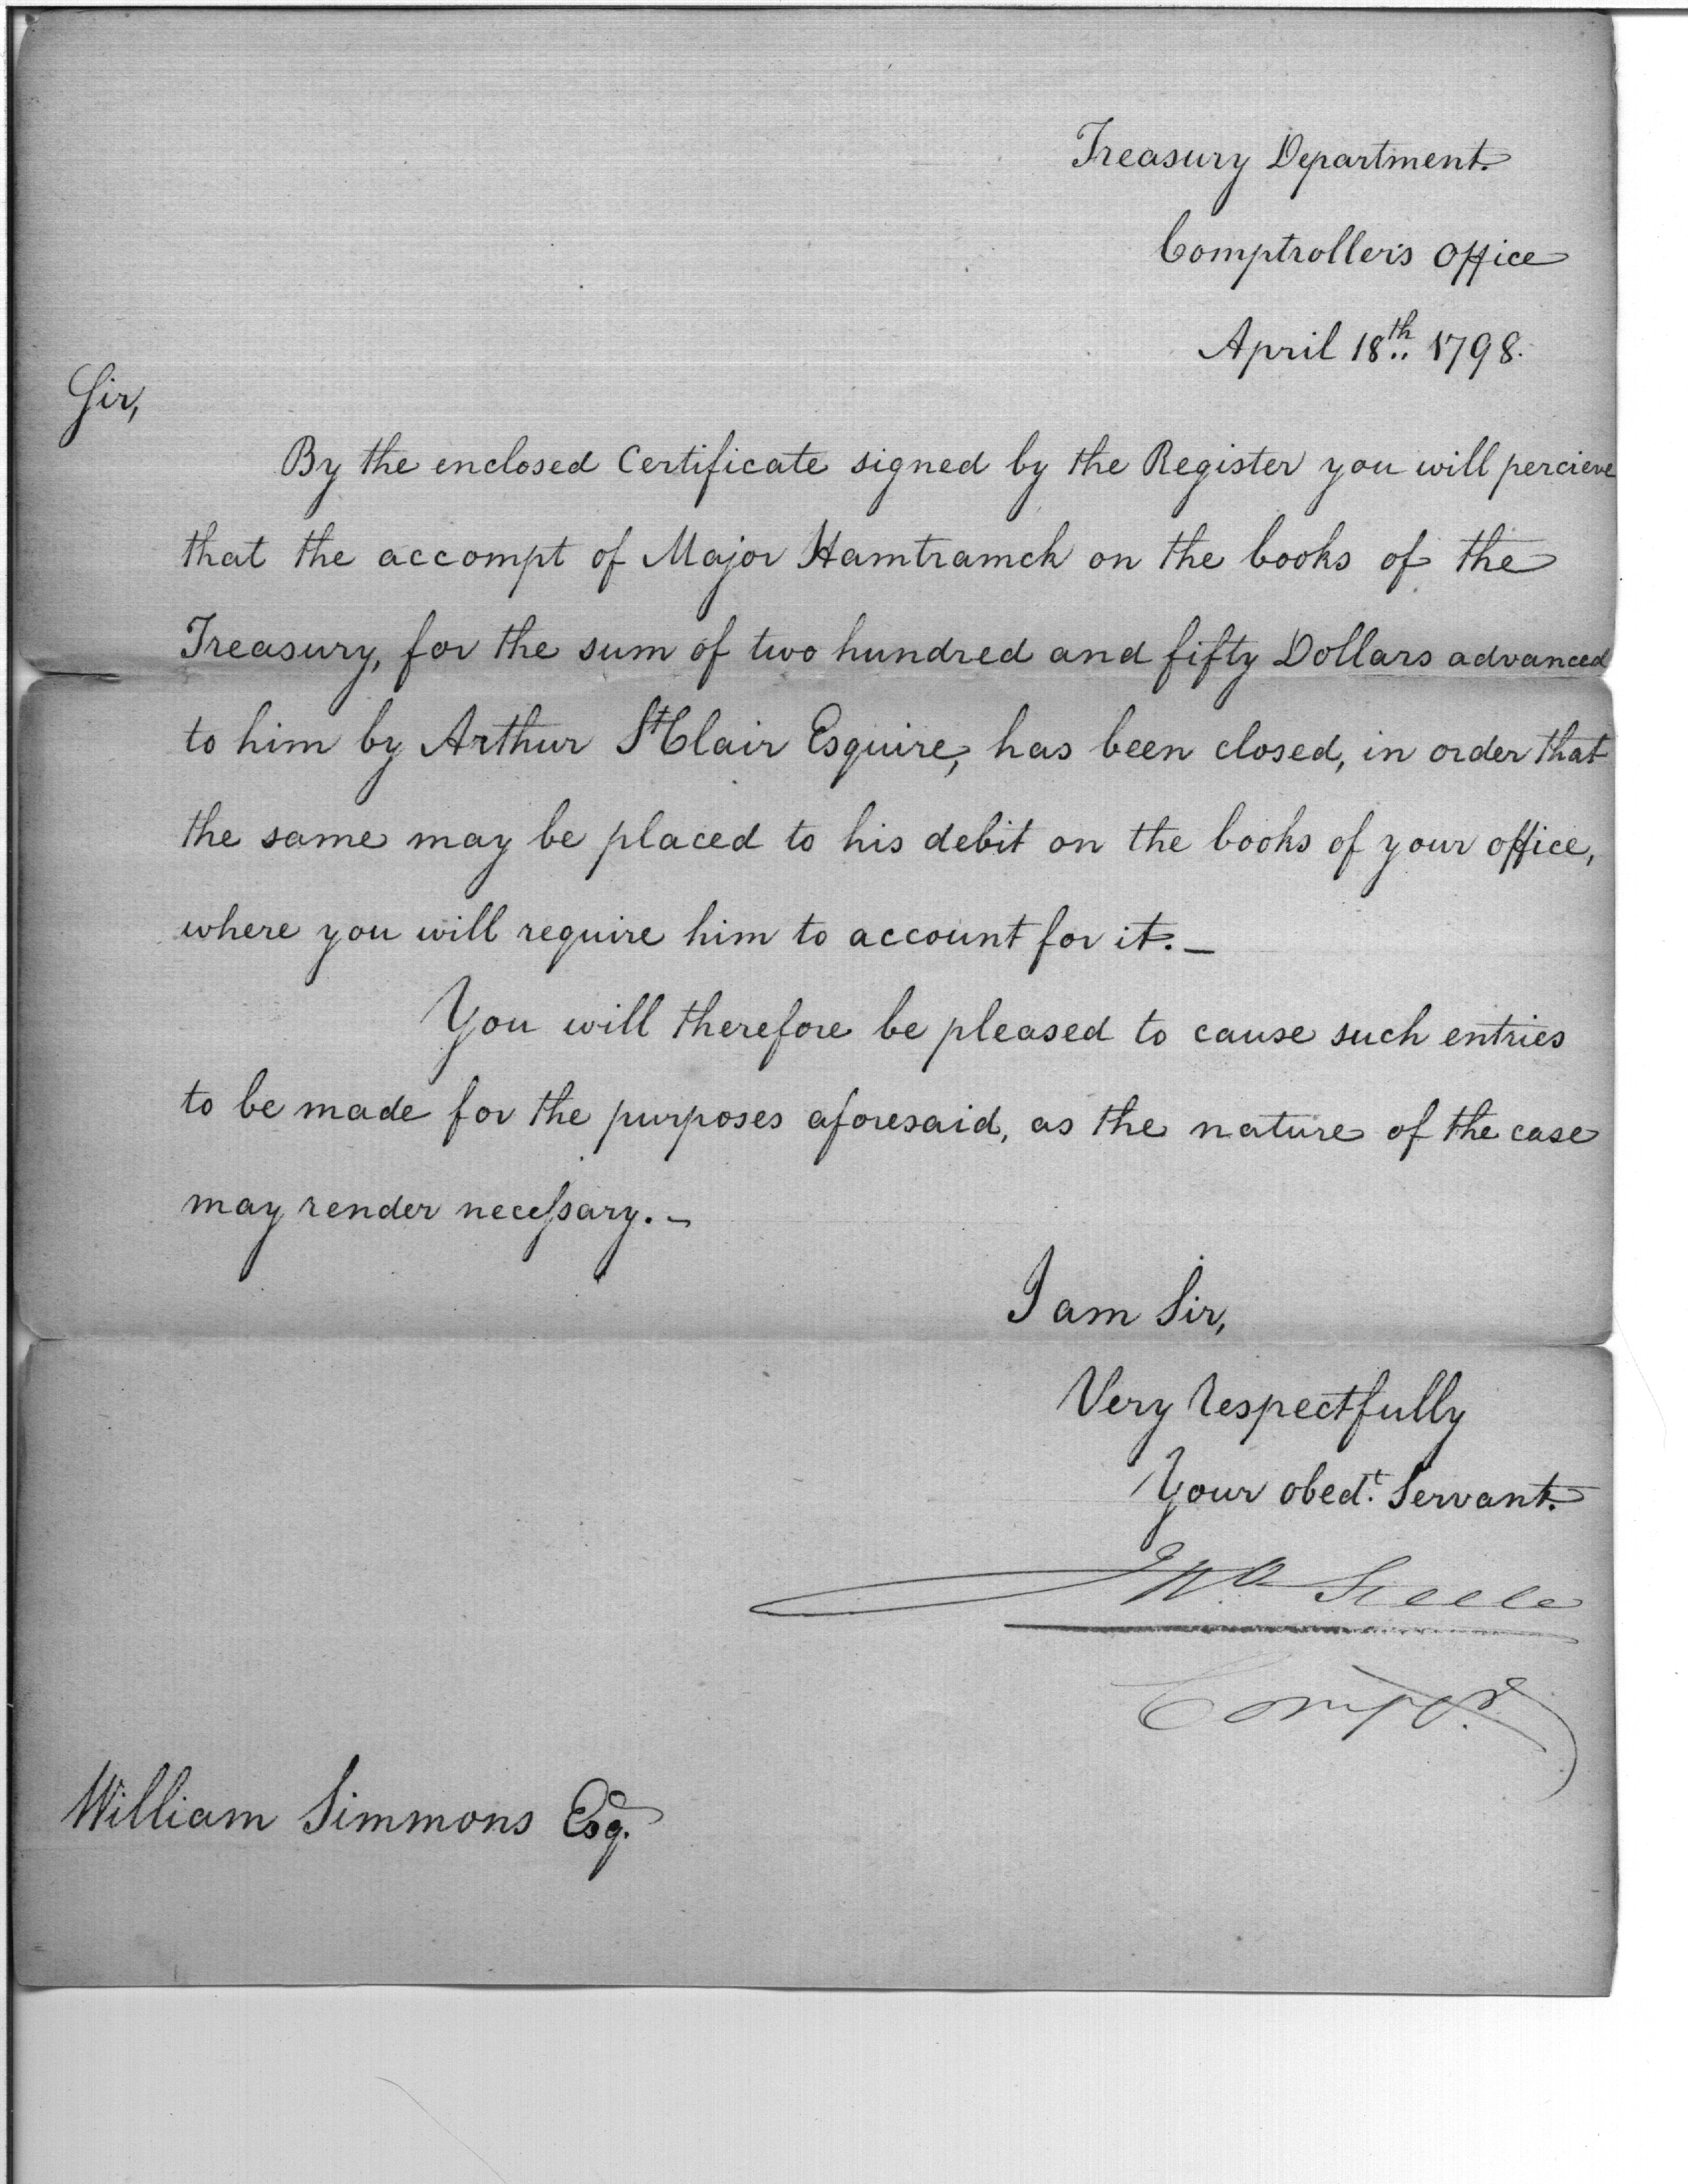 Treasury Department.
Comptroller's Office
April 18th. 1798.
Sir,
By the enclosed Certificate signed by the Register you will percieve
that the accompt of Major Hamtramck on the books of the
Treasury, for the sum of two hundred and fifty Dollars advanced
to him by Arthur St Clair Esquire, has been closed, in order that
the same may be placed to his debit on the books of your office,
where you will require him to account for it. —
You will therefore be pleased to cause such entries
to be made for the purposes aforesaid, as the nature of the case
may render neceſsary. —
I am Sir,
Very respectfully
Your obedt. Servant.
Jno. Steele
Comptr.
William Simmons Esq.